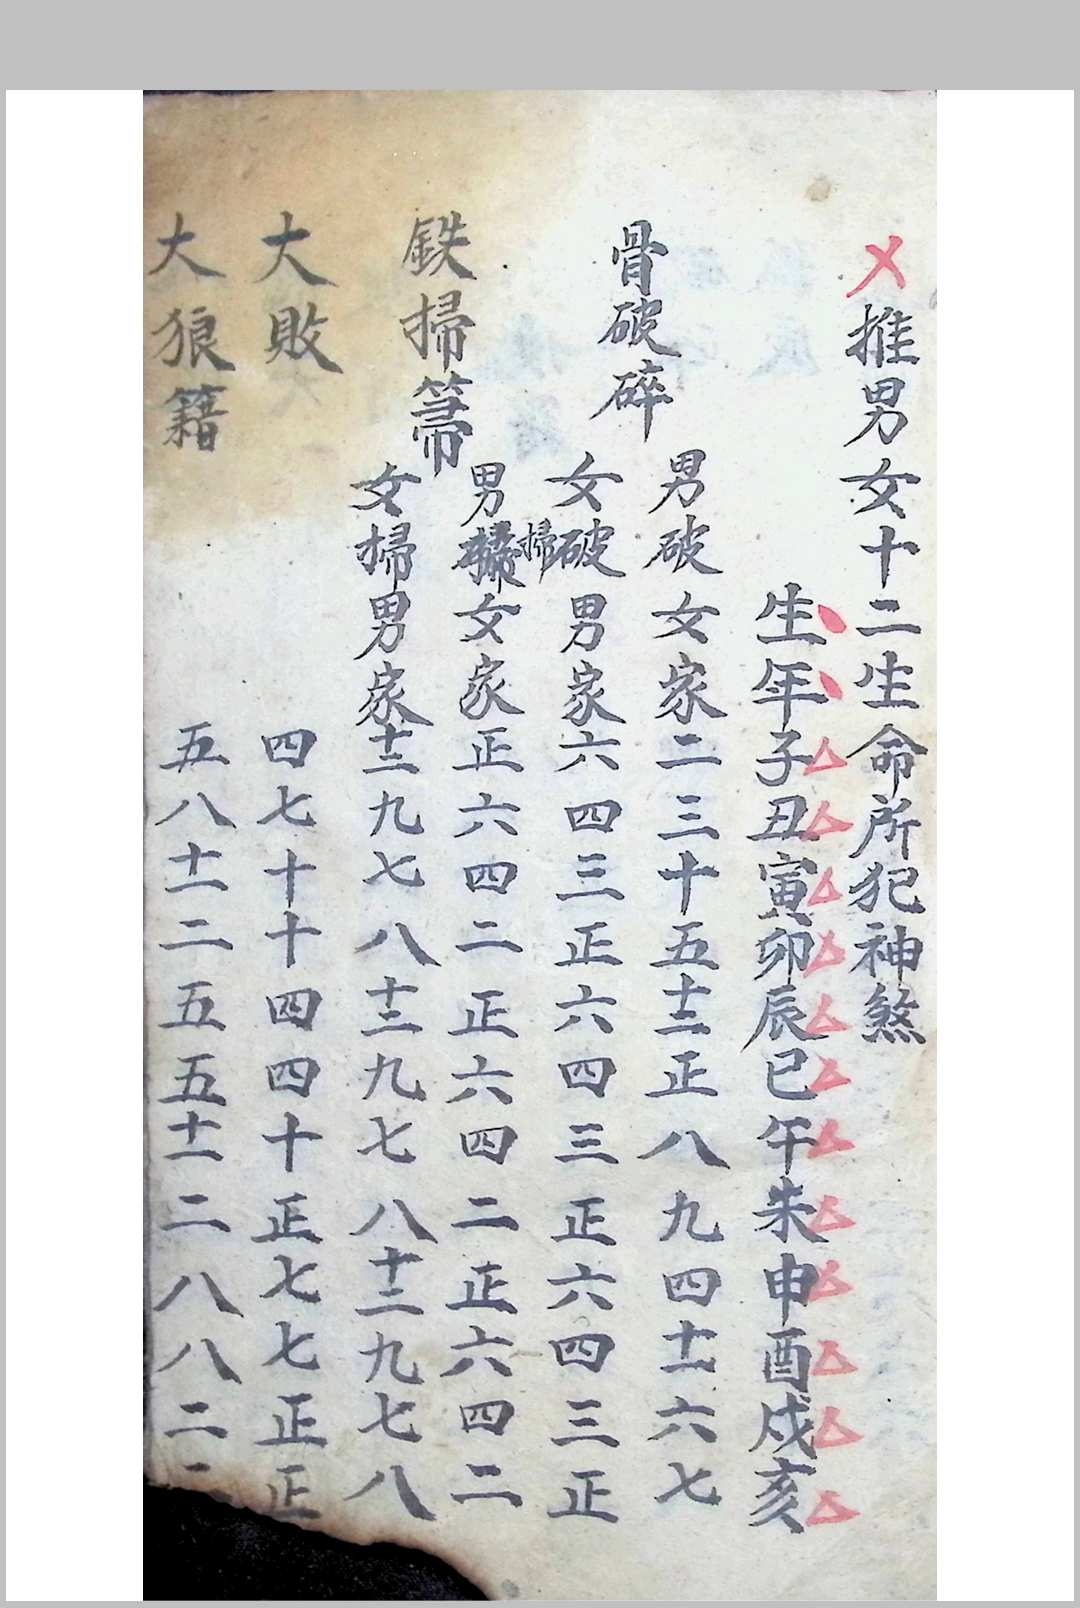 推男女十二生命所犯神煞
生年子丑寅卯辰巳午未申酉戌亥
骨破碎
男破女家二三十五十二正八九四十一六七
女破男家六四三正六四三正六四三正
鉄掃箒
男掃女家正六四二正六四二正六四二
女掃男家十二九七八十二九七八十二九七八
大敗四七十十四四十正七七正正
大狼籍五八十一二五五十一二八八二二